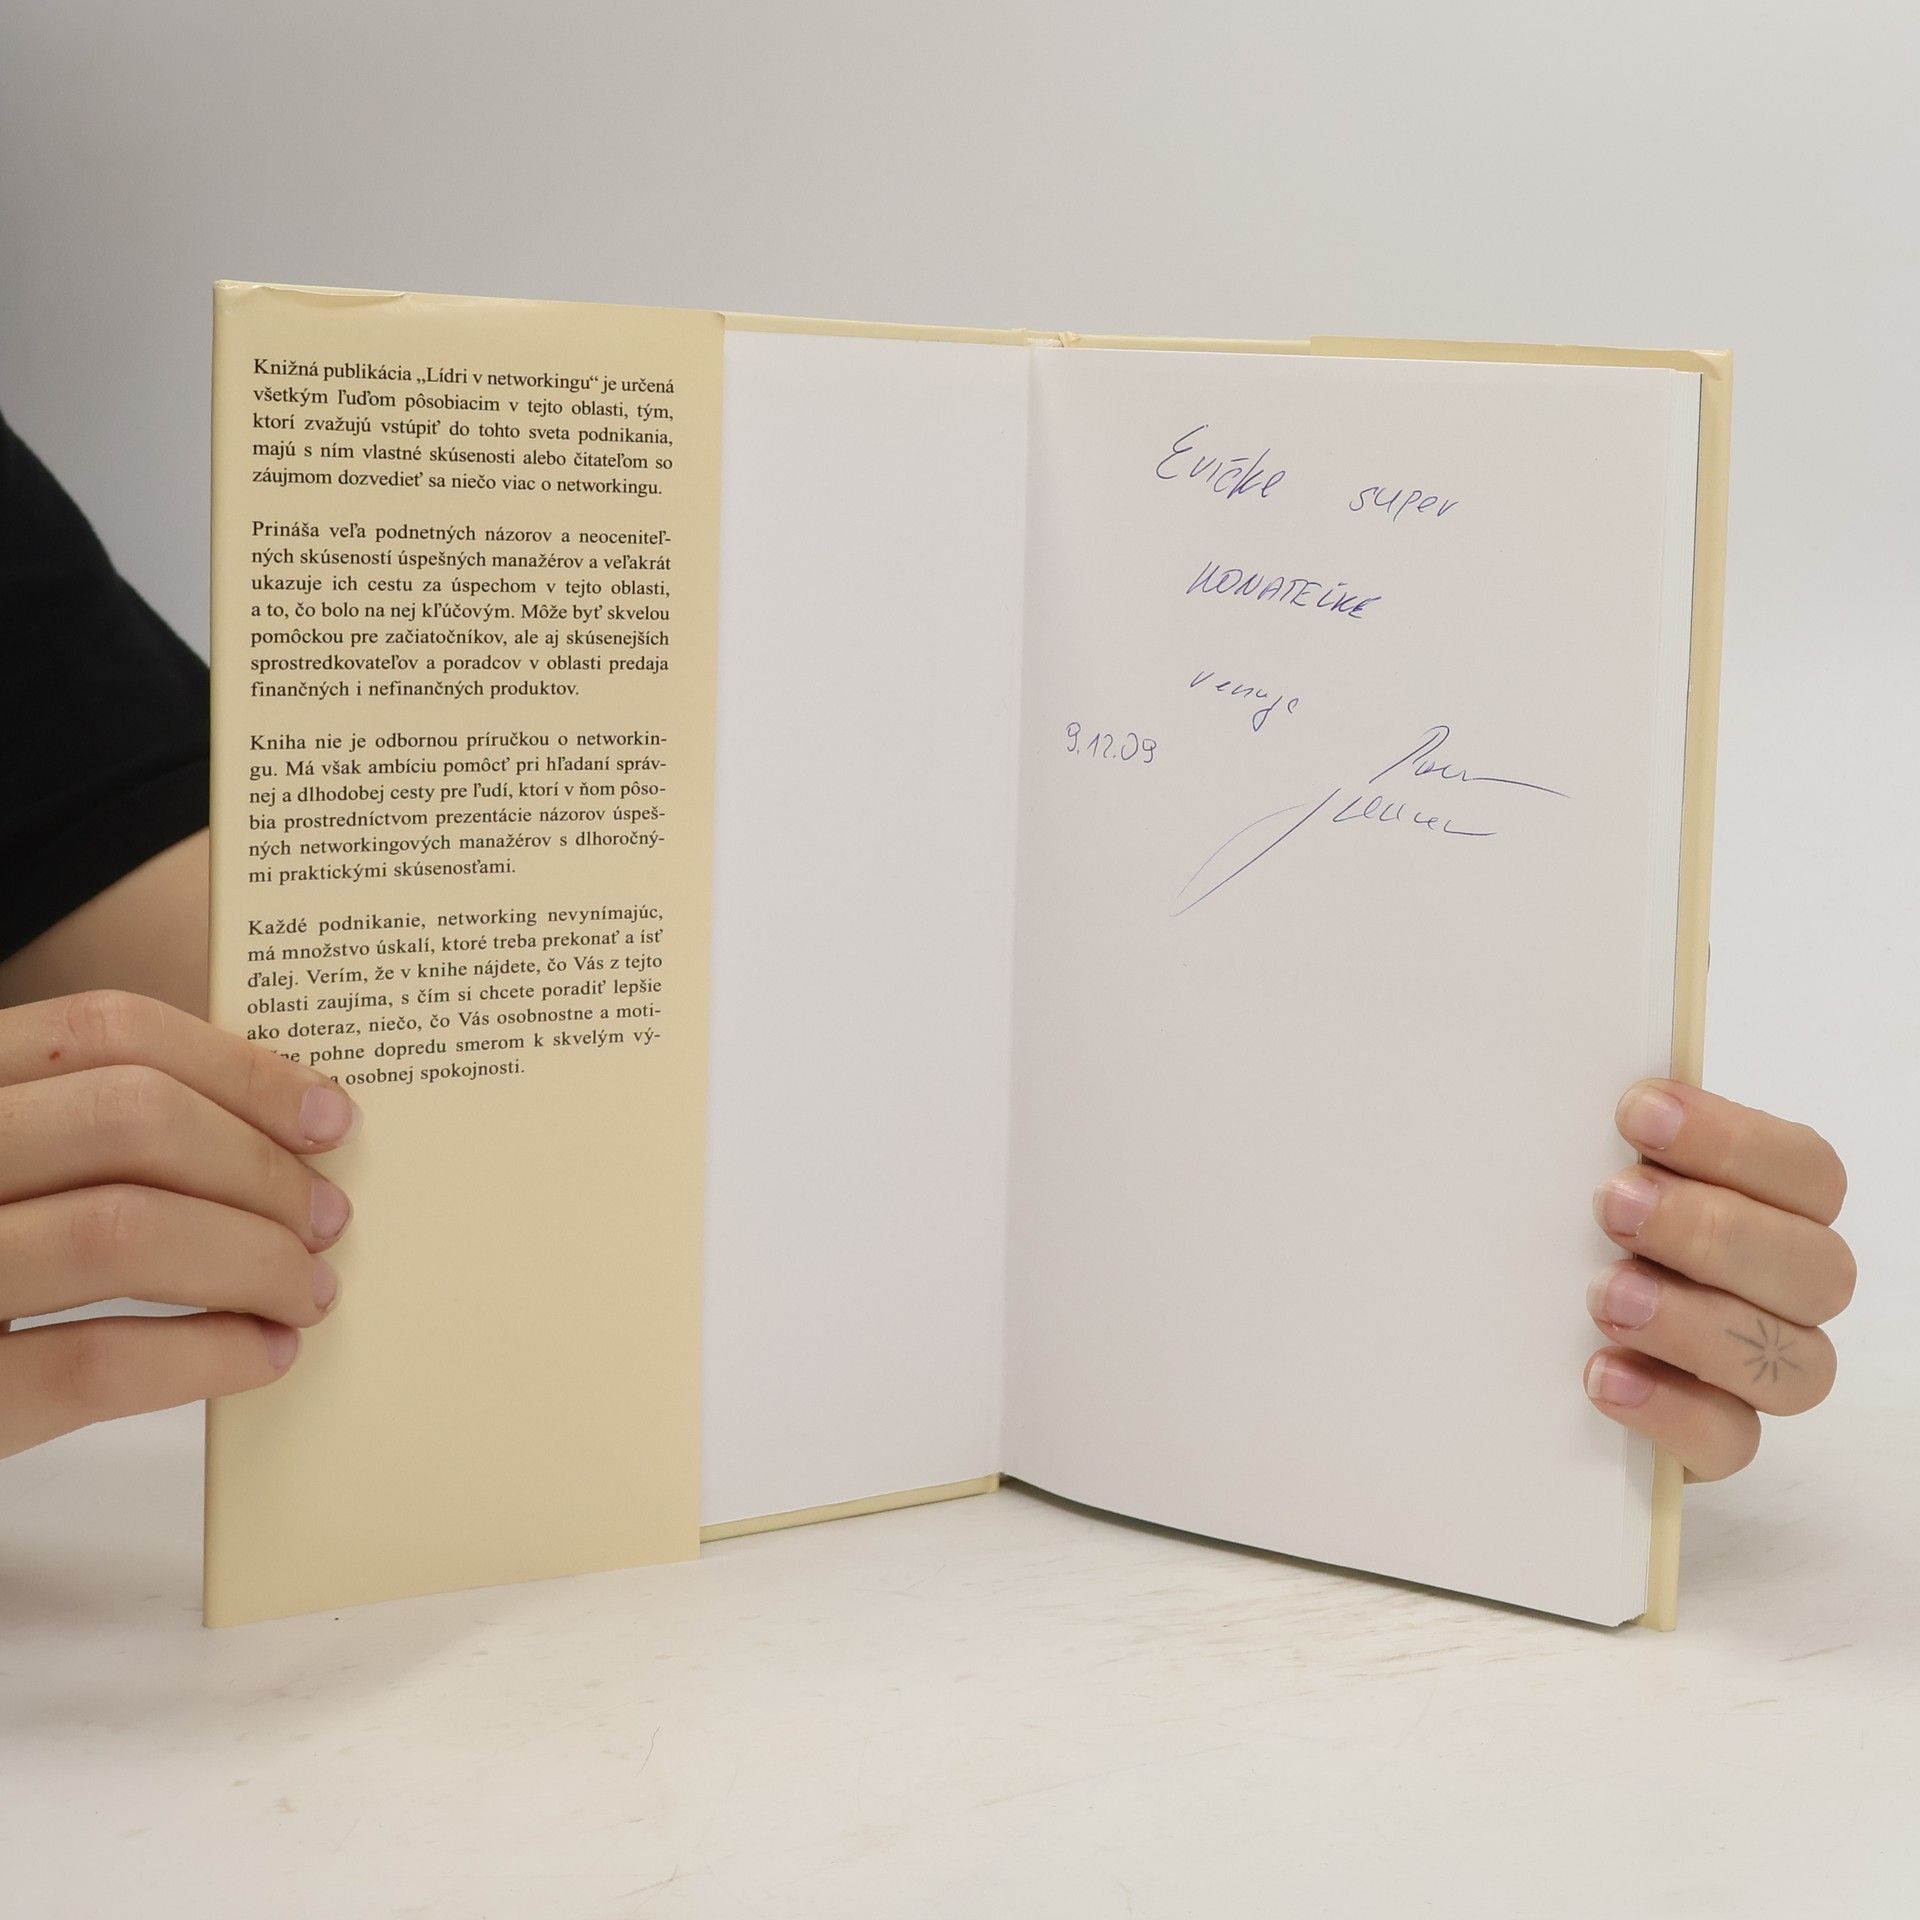 Knižná publikácia „Lídri v networkingu“ je určená
všetkým ľuďom pôsobiacim v tejto oblasti, tým,
ktorí zvažujú vstúpiť do tohto sveta podnikania,
majú s ním vlastné skúsenosti alebo čitateľom so
záujmom dozvedieť sa niečo viac o networkingu.
Prináša veľa podnetných názorov a neoceniteľ-
ných skúseností úspešných manažérov a veľakrát
ukazuje ich cestu za úspechom v tejto oblasti,
a to, čo bolo na nej kľúčovým. Môže byť skvelou
pomôckou pre začiatočníkov, ale aj skúsenejších
sprostredkovateľov a poradcov v oblasti predaja
finančných i nefinančných produktov.
Kniha nie je odbornou príručkou o networkin-
gu. Má však ambíciu pomôcť pri hľadaní správ-
nej a dlhodobej cesty pre ľudí, ktorí v ňom pôso-
bia prostredníctvom prezentácie názorov úspeš-
ných networkingových manažérov s dlhoročný-
mi praktickými skúsenosťami.
Každé podnikanie, networking nevynímajúc,
má množstvo úskalí, ktoré treba prekonať a ísť
ďalej. Verím, že v knihe nájdete, čo Vás z tejto
oblasti zaujíma, s čím si chcete poradiť lepšie
ako doteraz, niečo, čo Vás osobnostne a moti-
pohne dopredu smerom k skvelým vý-
a osobnej spokojnosti.
Evičke super
KONATEĽKE
venuje
9.12.09